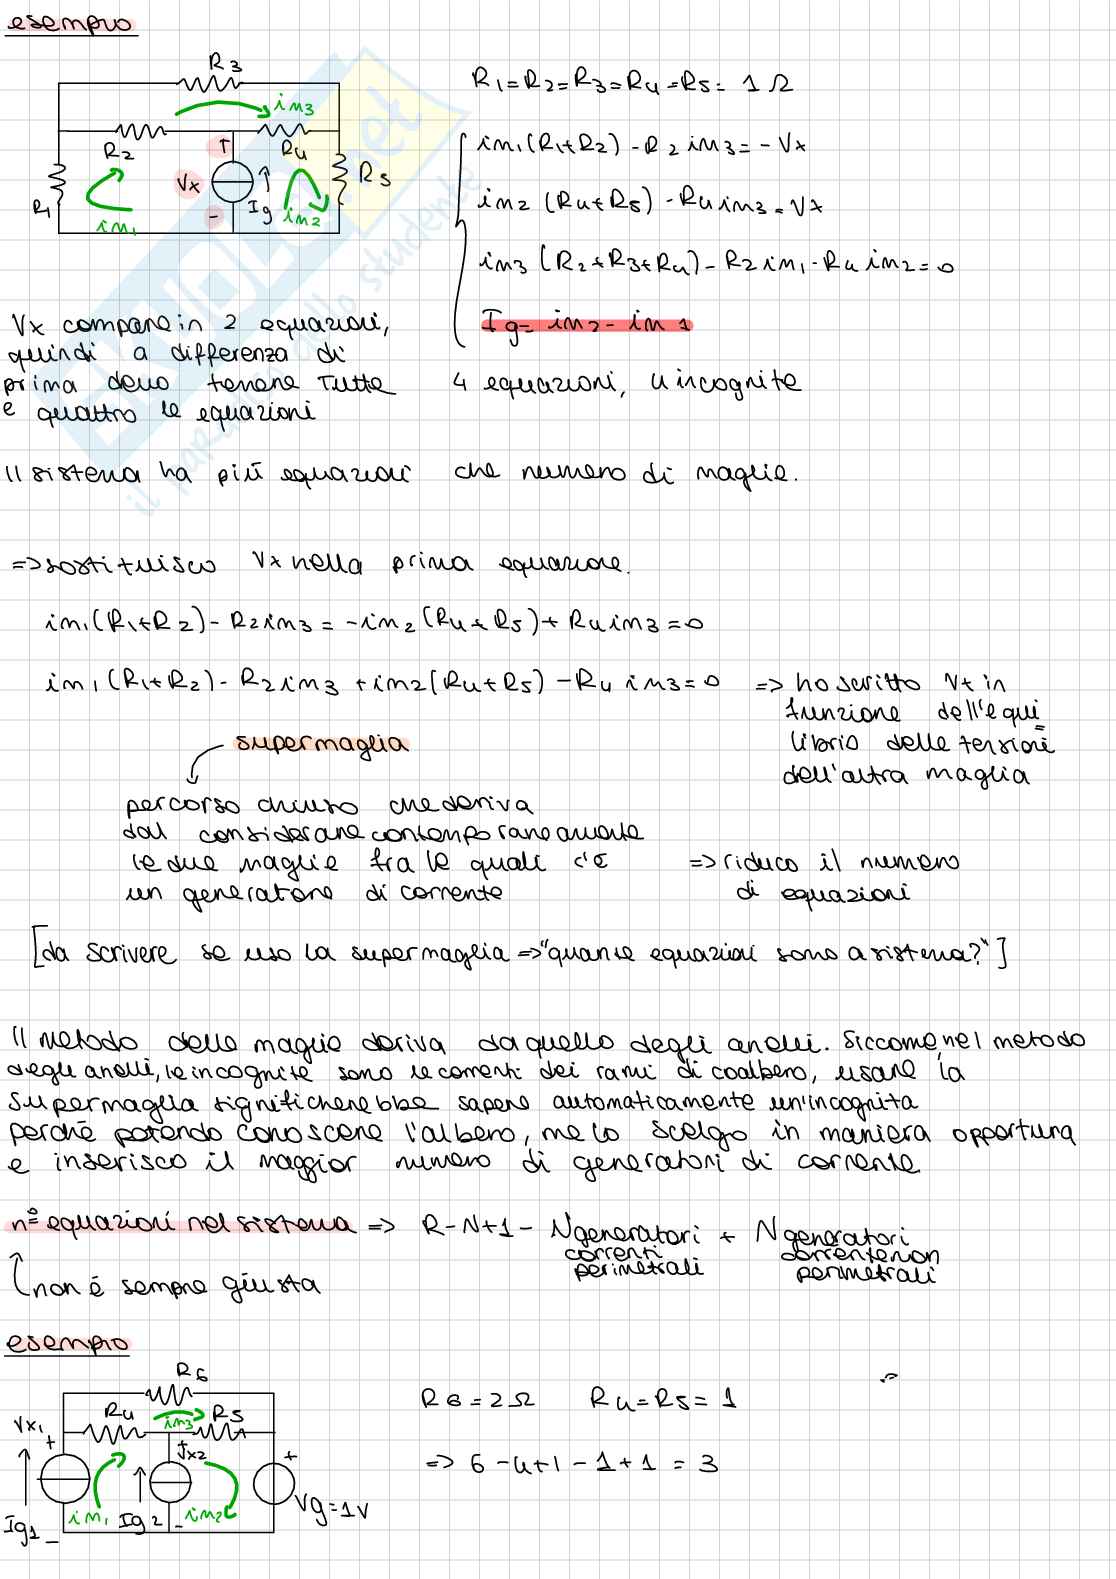 esempio
R3
R1=R2=R3=R4=R5= 1 Ω
im3
R2
R4
im1(R1+R2) - R2 im3 = - Vx
+
Vx
R5
R1
-
Ig
im2
im1
im2 (R4+R5) - R4 im3 = Vx
im3 (R2+R3+R4) - R2 im1 - R4 im2 = 0
Ig = im2 - im1
Vx compare in 2 equazioni,
quindi a differenza di
prima devo tenere tutte
e quattro le equazioni
4 equazioni, 4 incognite
Il sistema ha più equazioni che numero di maglie.
=> sostituisco Vx nella prima equazione.
im1(R1+R2) - R2 im3 = -im2 (R4+R5) + R4 im3 = 0
im1(R1+R2) - R2 im3 + im2(R4+R5) - R4 im3 = 0 => ho scritto Vx in
funzione dell'equi
librio delle tensioni
dell'altra maglia
supermaglia
percorso chiuso che deriva
dal considerare contemporaneamente
le due maglie fra le quali c'è
un generatore di corrente
=> riduco il numero
di equazioni
[da scrivere se uso la supermaglia => "quante equazioni sono a sistema?"]
Il metodo delle maglie deriva da quello degli anelli. Siccome nel metodo
degli anelli, le incognite sono le correnti dei rami di coalbero, usare la
supermaglia significherebbe sapere automaticamente un'incognita
perchè potendo conoscere l'albero, me lo scelgo in maniera opportuna
e inserisco il maggior numero di generatori di corrente
n° equazioni nel sistema => R-N+1 - N generatori correnti perimetrali + N generatori corrente non perimetrali
non è sempre giusta
esempio
R6
R6 = 2Ω R4 = R5 = 1
Vx1
R4
im3
R5
+
Vx2
+
=> 6 - 4 + 1 - 1 + 1 = 3
im1
Ig2
-
im2
Vg = 1V
Ig1
-